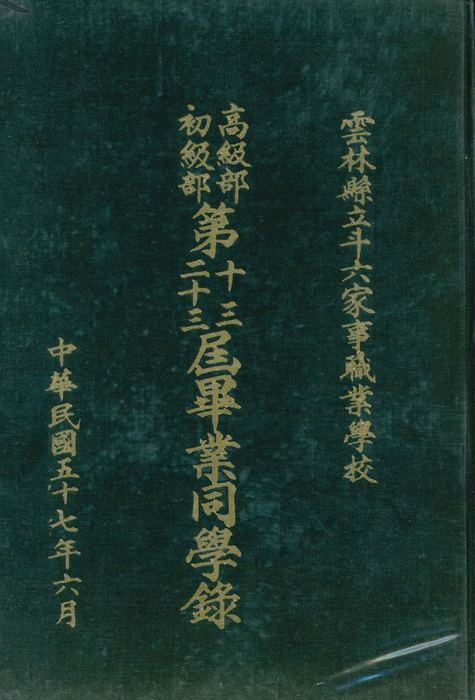 雲林縣立斗六家事職業學校
高級部
初級部
第
十三
二十三
屆畢業同學錄
中華民國五十七年六月